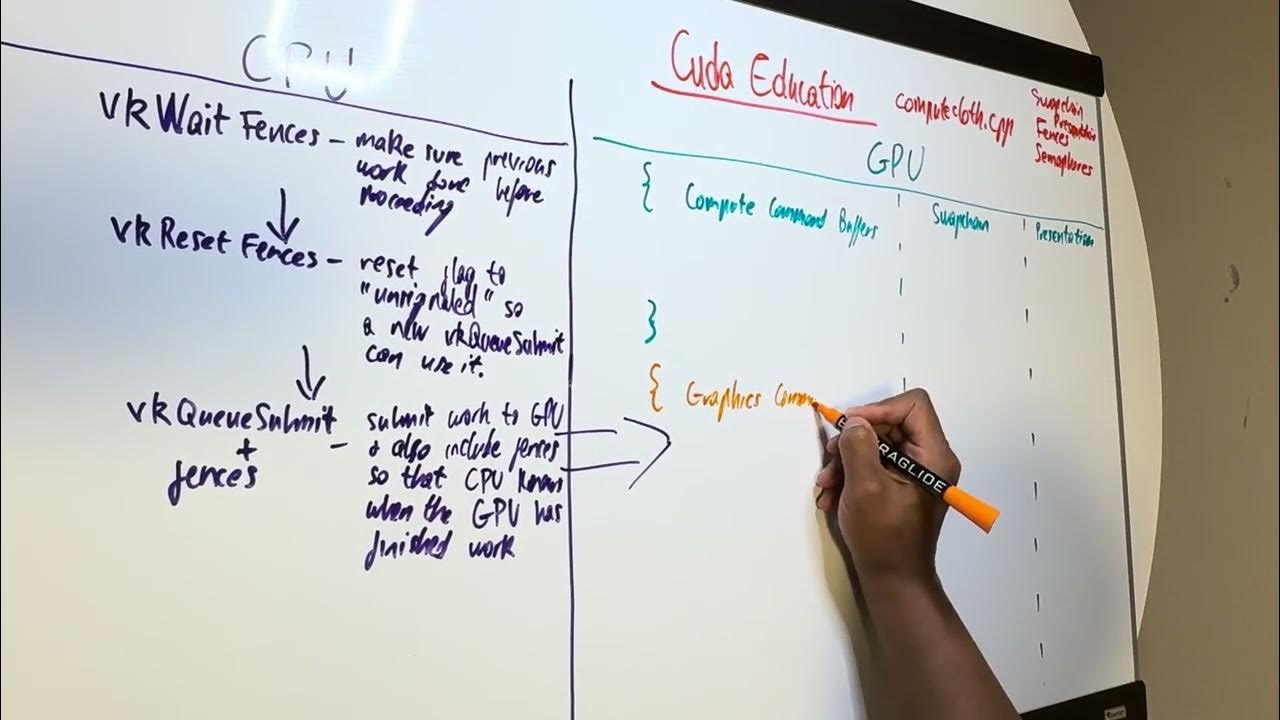 CPU
vkWait Fences - make sure previous
work done before
proceeding
vkReset Fences - reset flag to
"unsignaled" so
a new vkQueueSubmit
can use it.
vkQueueSubmit - submit work to GPU
+ & also include fences
fences so that CPU knows
when the GPU has
finished work
Cuda Education
computecloth.cpp
Swapchain
Presentation
Fences
Semaphores
GPU
{ Compute Command Buffers
Swapchain
Presentation
}
{ Graphics Comm
GRAGLIDE